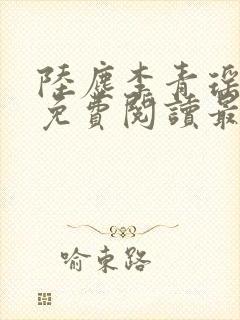 陸塵李青瑤
免費閱讀最
喻東路